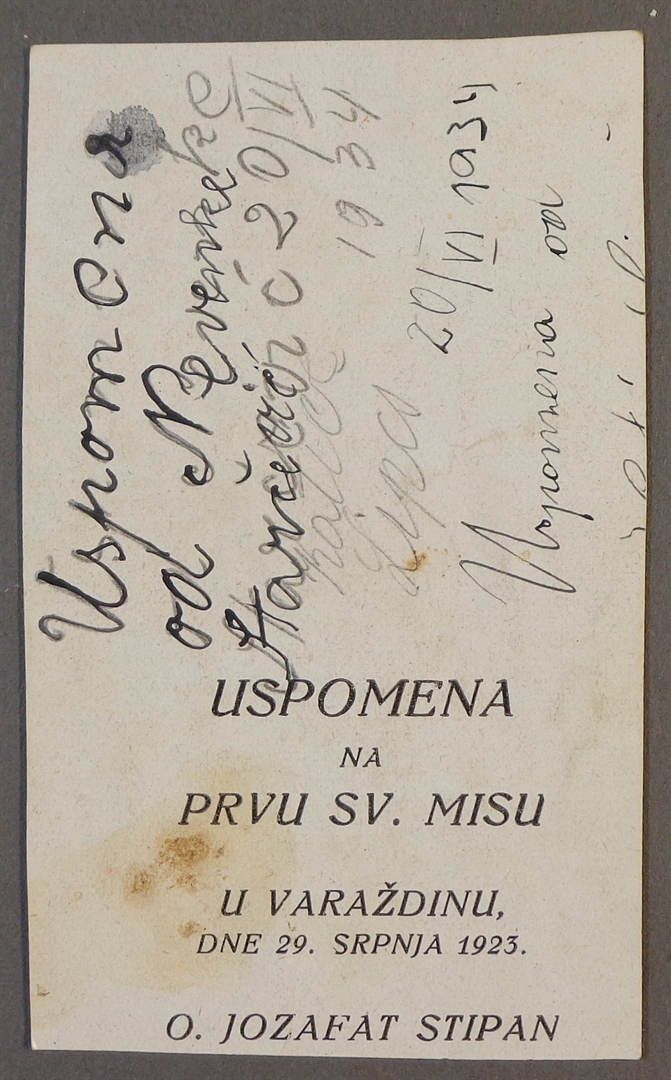 Uspomena
od Nevenke
Starčević 20/VI
1934
Lipa
20/VI 1934
Uspomena od
USPOMENA
NA
PRVU SV. MISU
U VARAŽDINU,
DNE 29. SRPNJA 1923.
O. JOZAFAT STIPAN